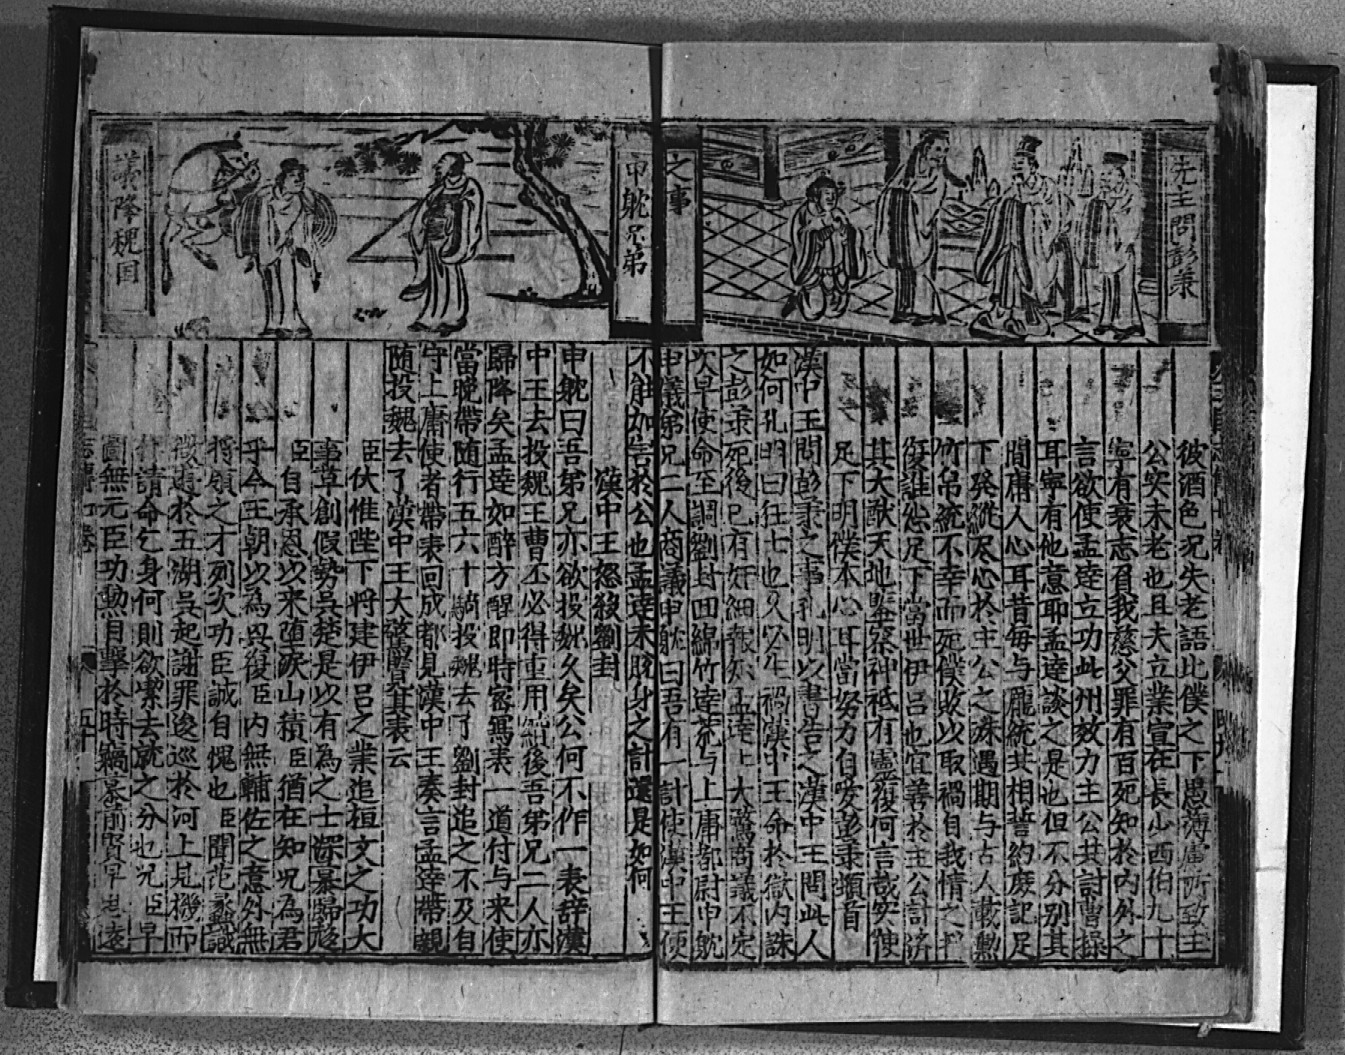 先主問彭羕
之事
彼酒色况失老語此僕之下愚薄慮所致主
公实未老也且夫立業豈在長少西伯九十
寧有衰志召我慈父罪有百死知於内外之
言欲使孟逹立功此州效力主公共討曹操
耳寜有他意耶孟逹談之是也但不分别其
間庸人心耳昔每与龎統共相誓約庶記足
下癸泛尽心於主公之洙遇期与古人載勲
竹帛統不幸而死僕敗以取禍自我情之
復誰怨足下當世伊吕也宜善於主公計济
其大猷天地鑒察神祗有灵復何言哉安使
足下明僕本心耳當努力自愛彭羕頓首
漢中王問彭羕之事孔明以書告之漢中王問此人
如何孔明曰狂士也久必生禍漢中王命於獄内誅
之彭羕死後已有奸細報知孟逹大驚商議不定
次早使命至調劉封囬綿竹逹荒与上庸都尉申躭
申儀弟兄二人商議申躭曰吾有一計使漢中王便
申躭兄弟
議降魏国
不能加害於公也孟逹未脱身之計還是如何
漢中王怒殺劉封
申躭曰吾弟兄亦欲投魏久矣公何不作一表辞漢
中王去投魏王曹丕必得重用續後吾弟兄二人亦
歸降矣孟逹如醉方醒即時密寫表一道付与来使
當晚帶随行五六十騎投魏去了劉封追之不及自
守上庸使者帶表囬成都見漢中王奏言孟逹帶親
随投魏去了漢中王大驚覽其表云
臣伏惟陛下将建伊吕之業追桓文之功大
事草創假勢吳楚是以有為之士深慕歸移
臣自承恩以来堕淚山積臣猶在知况為君
乎今王朝以為畏復臣内無輔佐之意外無
将領之才列次功臣誠自愧也臣聞范蠡識
微遊於五湖吳起謝罪逡巡於河上見機而
請命乞身何則欲潔去就之分也况臣早
圖無元臣功勲自擊於時竊慕前賢早